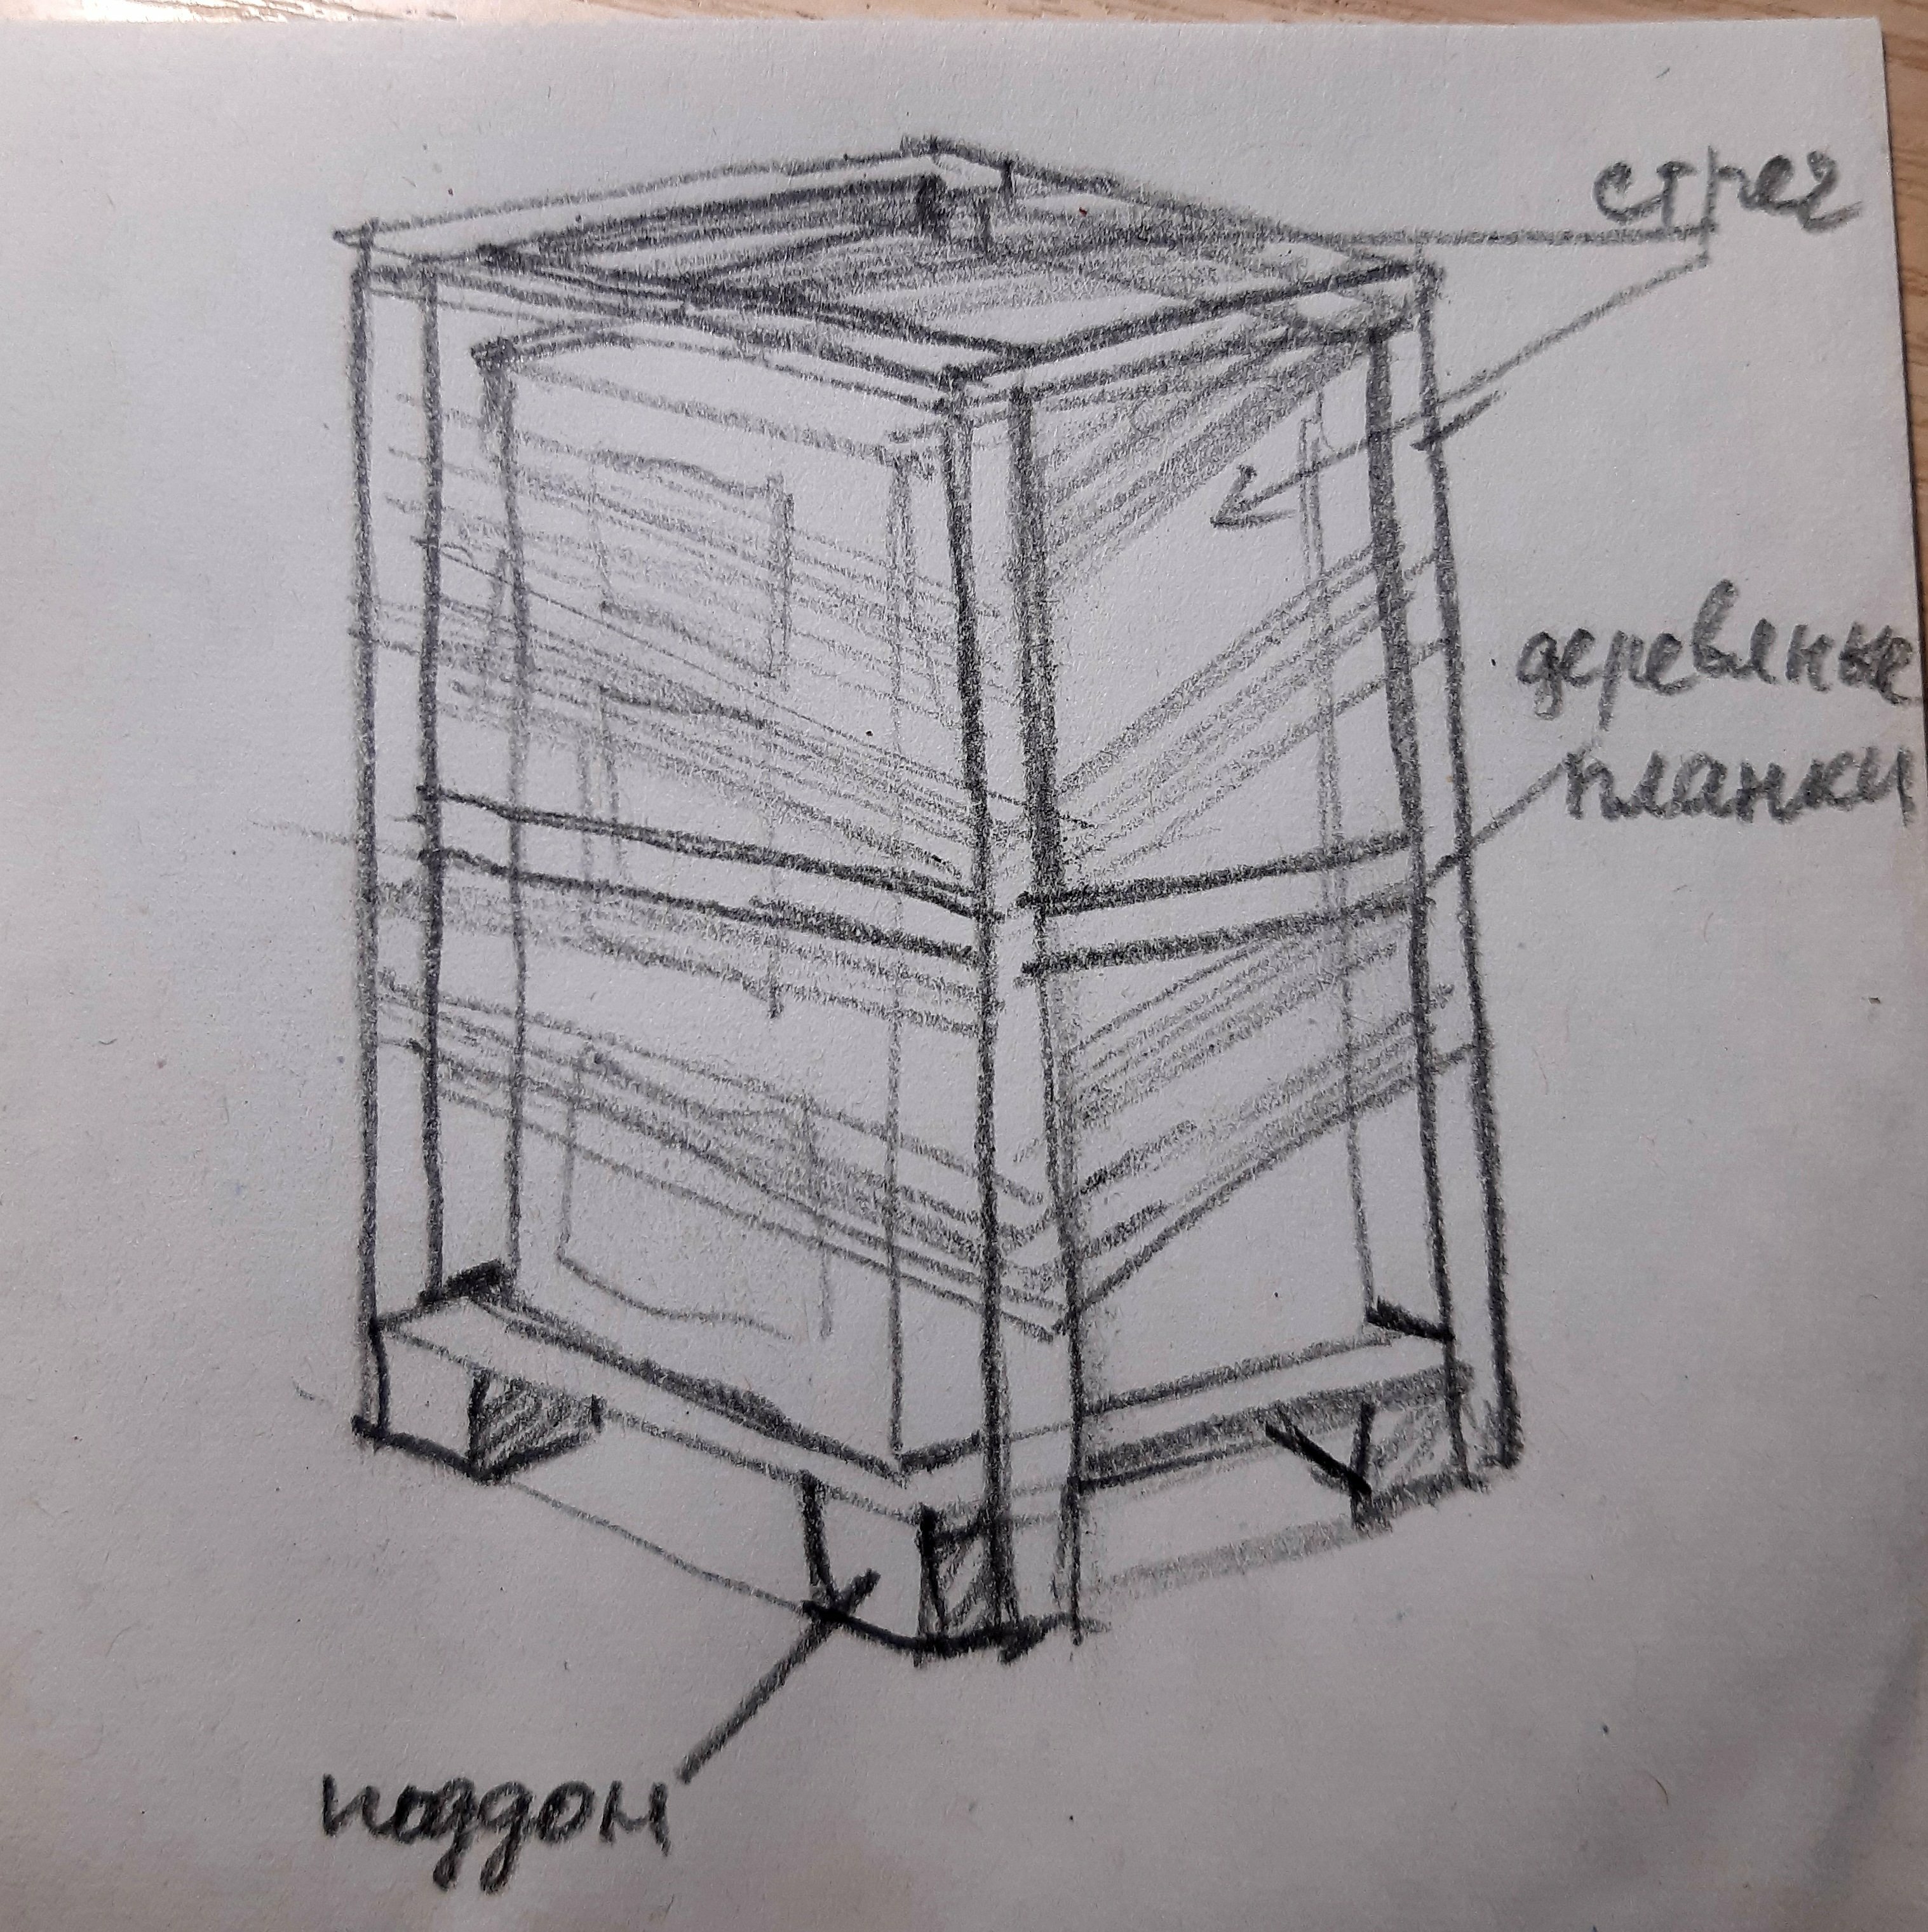 стреч
деревяные
планки
поддон